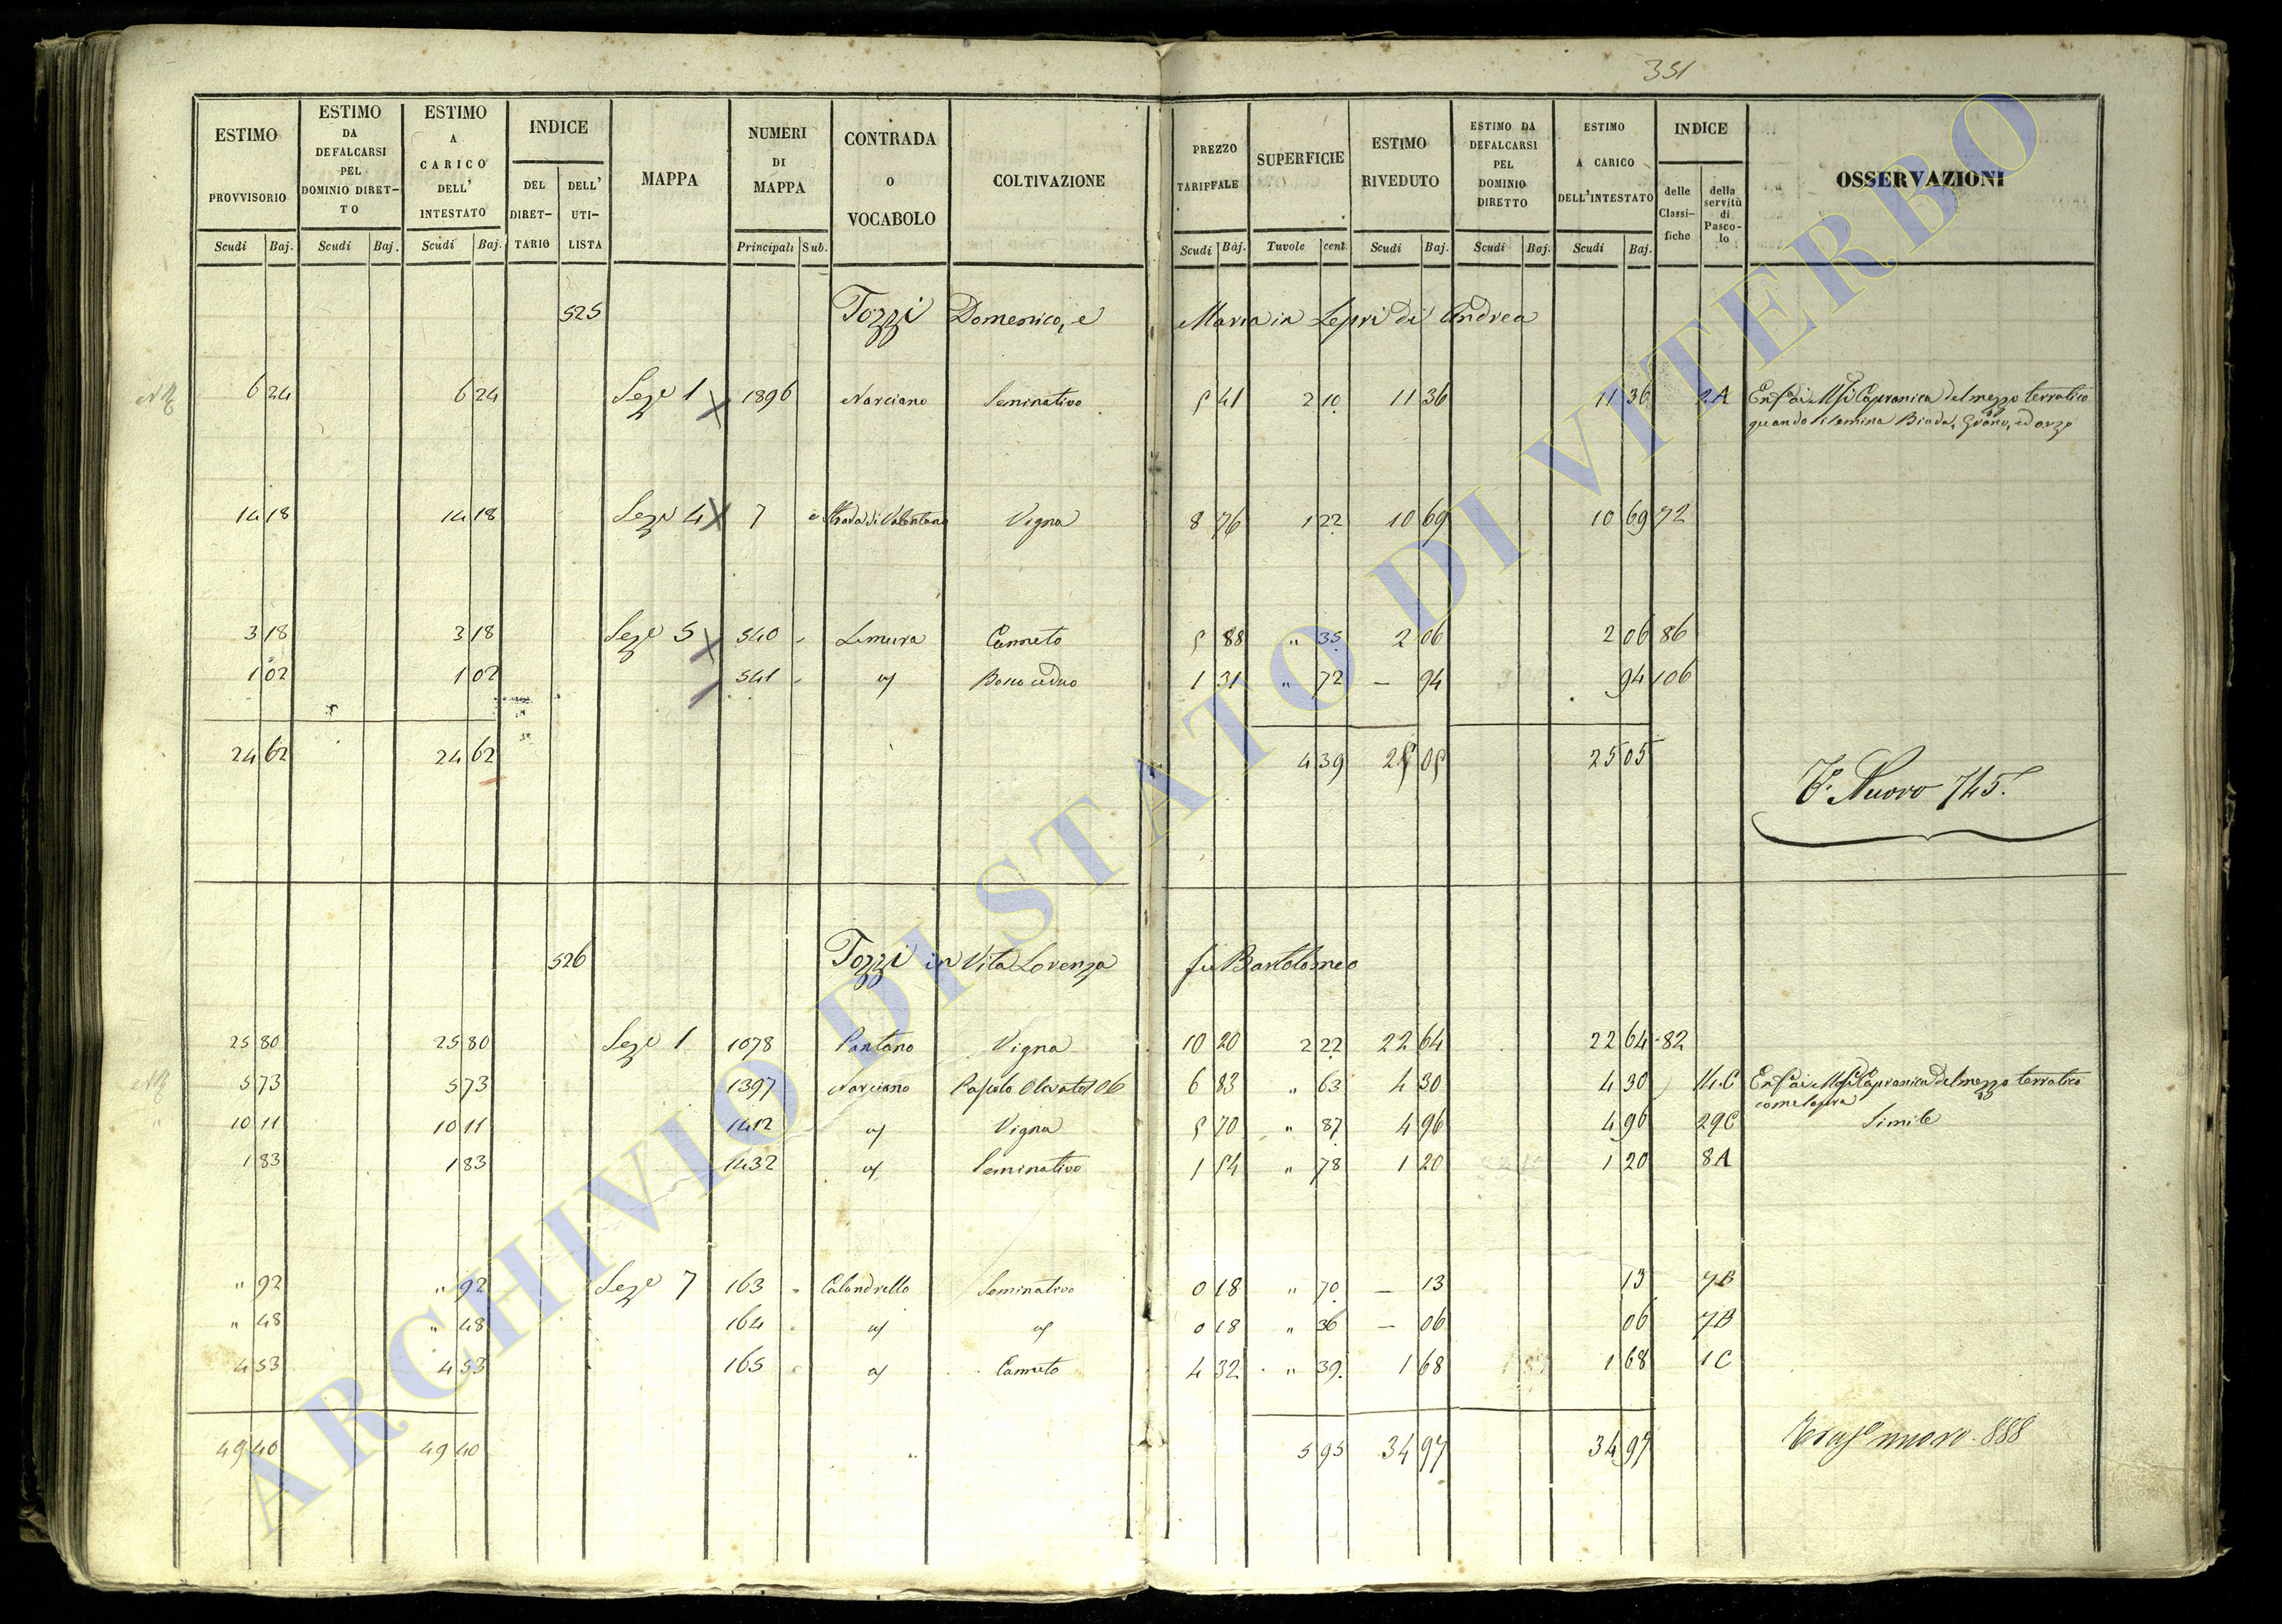 351
ESTIMO PROVVISORIO
ESTIMO DA DEFALCARSI PEL DOMINIO DIRET-TO
ESTIMO A CARICO DELL' INTESTATO
INDICE
DEL DIRET-TARIO
DELL' UTI-LISTA
MAPPA
NUMERI DI MAPPA
CONTRADA O VOCABOLO
COLTIVAZIONE
PREZZO TARIFFALE
SUPERFICIE
ESTIMO RIVEDUTO
ESTIMO DA DEFALCARSI PEL DOMINIO DIRETTO
ESTIMO A CARICO DELL'INTESTATO
INDICE
delle Classi-fiche
della servitù di Pasco-lo
OSSERVAZIONI
Scudi Baj. Scudi Baj. Scudi Baj. Principali Sub. Scudi Baj. Tavole cent. Scudi Baj. Scudi Baj. Scudi Baj.
525 Tozzi Domenico, e Maria in Lepri di Andrea
6 24 6 24 Seze 1 1896 Narciano Seminativo 5 41 2 10 11 36 11 36 2A Capranica del mezzo terratico
quando si semina Biada, Grano, ed orzo
14 18 14 18 Seze 4 7 Strada di Valentano Vigna 8 76 1 22 10 69 10 69 72
3 18 3 18 Seze 5 540 Lemura Canneto 5 88 " 35 2 06 2 06 86
1 02 1 02 541 Bosco ceduo 1 31 " 72 — 94 94 106
24 62 24 62 4 39 25 05 25 05
Nuovo 745.
526 Tozzi in Vita Lorenza fu Bartolomeo
25 80 25 80 Seze 1 1078 Pantano Vigna 10 20 2 22 22 64 22 64 82
5 73 5 73 1397 Narciano Pascolo Olivato 6 83 " 63 4 30 4 30 14.C Capranica del mezzo terratico
come sopra
10 11 10 11 1412 Vigna 5 70 " 87 4 96 4 96 29C Simile
1 83 1 83 1432 Seminativo 1 54 " 78 1 20 1 20 8A
" 92 " 92 Seze 7 163 Calandrello Seminativo 0 18 " 70 — 13 13 7B
" 48 " 48 164 0 18 " 36 — 06 06 7B
4 53 4 53 165 Canneto 4 32 " 39 1 68 1 68 1C
49 40 49 40 5 95 34 97 34 97
nuovo 888
ARCHIVIO DI STATO DI VITERBO